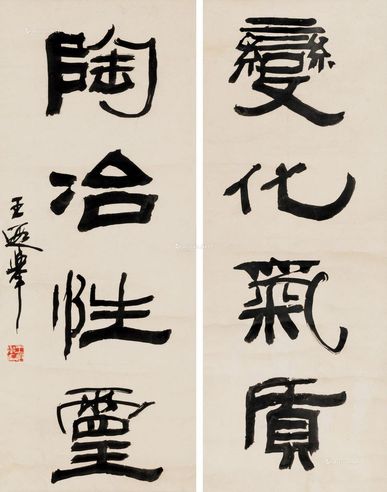 變化氣質
陶冶性靈
王遐舉